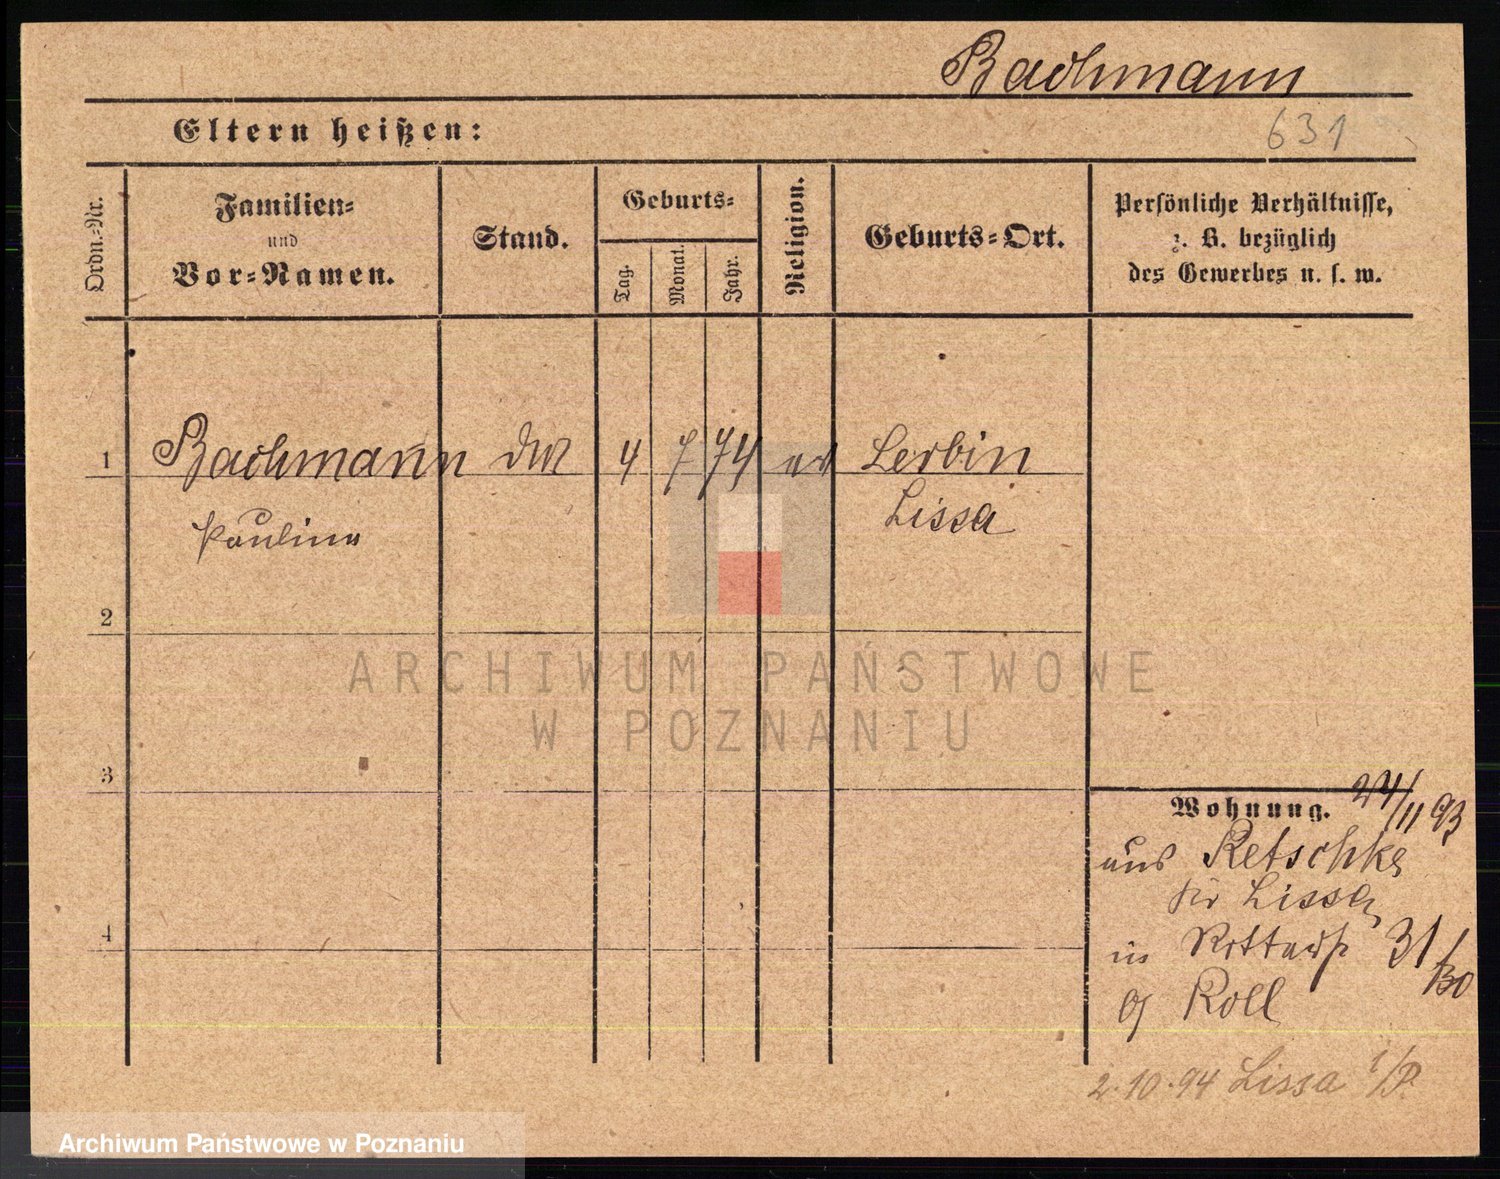 Bachmann
Eltern heißen:
631
Ordn.-Nr.
Familien-
und
Vor-Namen.
Stand.
Geburts-
Tag.
Monat.
Jahr.
Religion.
Geburts-Ort.
Persönliche Verhältnisse,
z. B. bezüglich
des Gewerbes u. s. w.
1 Bachmann 4 7 74 ev Lerbin
Pauline Lissa
2
ARCHIWUM PAŃSTWOWE
W POZNANIU
3
Wohnung. 24/11 93
aus Retschke
Lissa
in 31/
Roll
2.10.94 Lissa i/P.
4
Archiwum Państwowe w Poznaniu